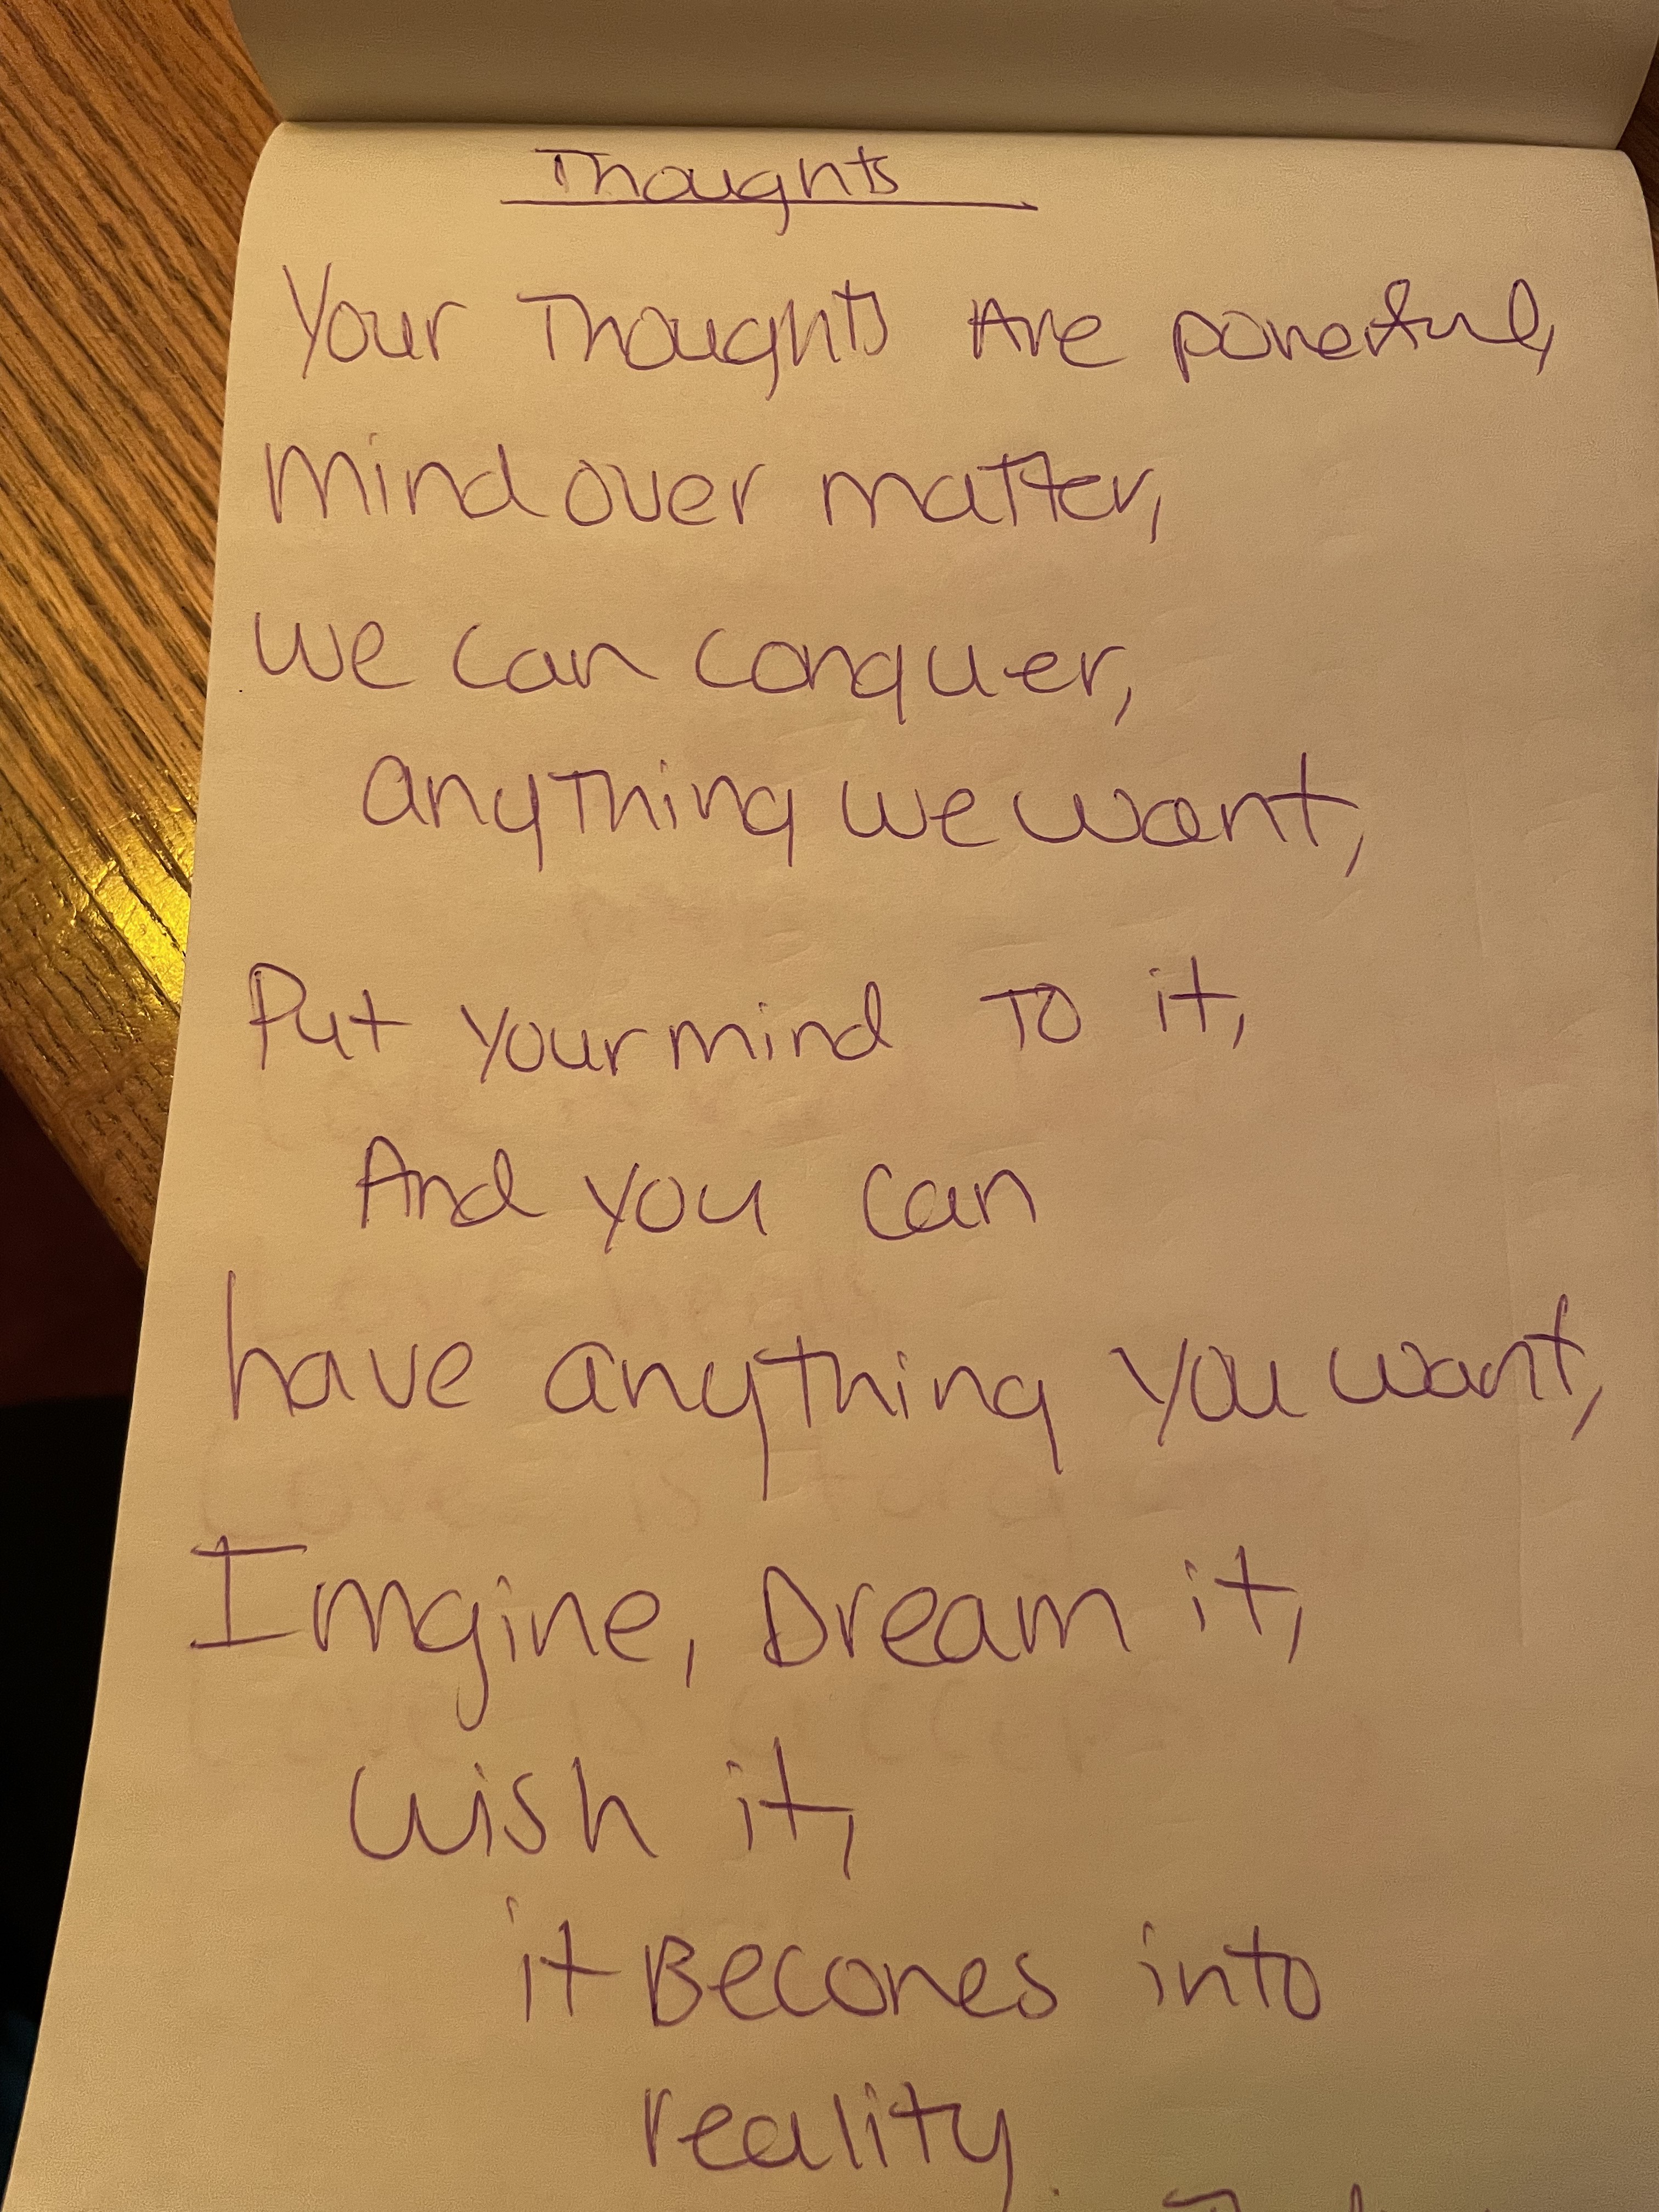 Thoughts
Your Thoughts Are powerful,
mind over matter,
we can conquer,
anything we want,
Put your mind To it,
And you can
have anything you want,
Imgine, Dream it,
wish it,
it Becomes into
reality.